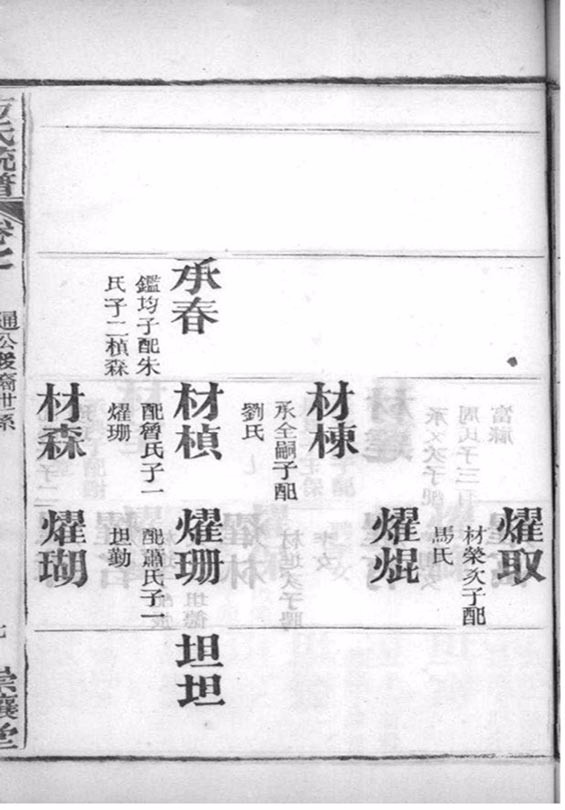 耀取
材榮次子配
馬氏
耀焜
材棟
承全嗣子配
劉氏
承春
鑑均子配朱
氏子二楨森
材楨
配曾氏子一
耀珊
耀珊
配蕭氏子一
坦勤
坦坦
材森
耀瑚
方氏統譜
卷之
通公後裔世系
崇讓堂